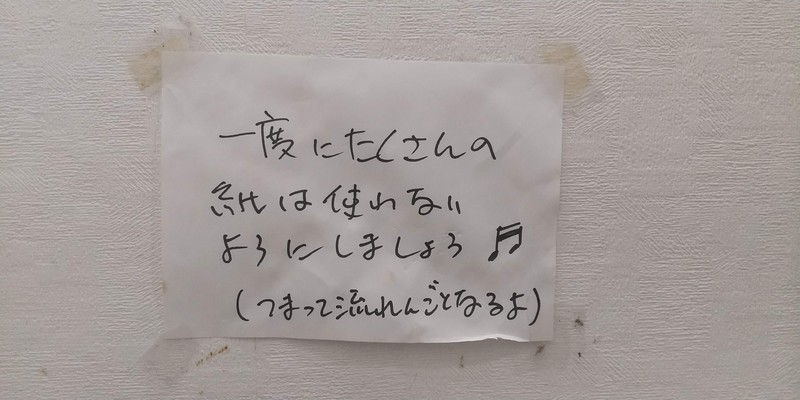 一度にたくさんの
紙は使わない
ようにしましょう♬
(つまって流れんごとなるよ)